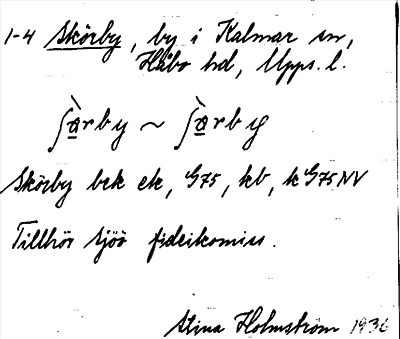 1-4 Skörby, by i Kalmar sn,
Håbo hd, Upps. l.
ʃàrby ~ ʃàrby
Skörby bek ek, G75, kb, k G75 NV
Tillhör Sjöö fideikomiss.
Stina Holmström 1936